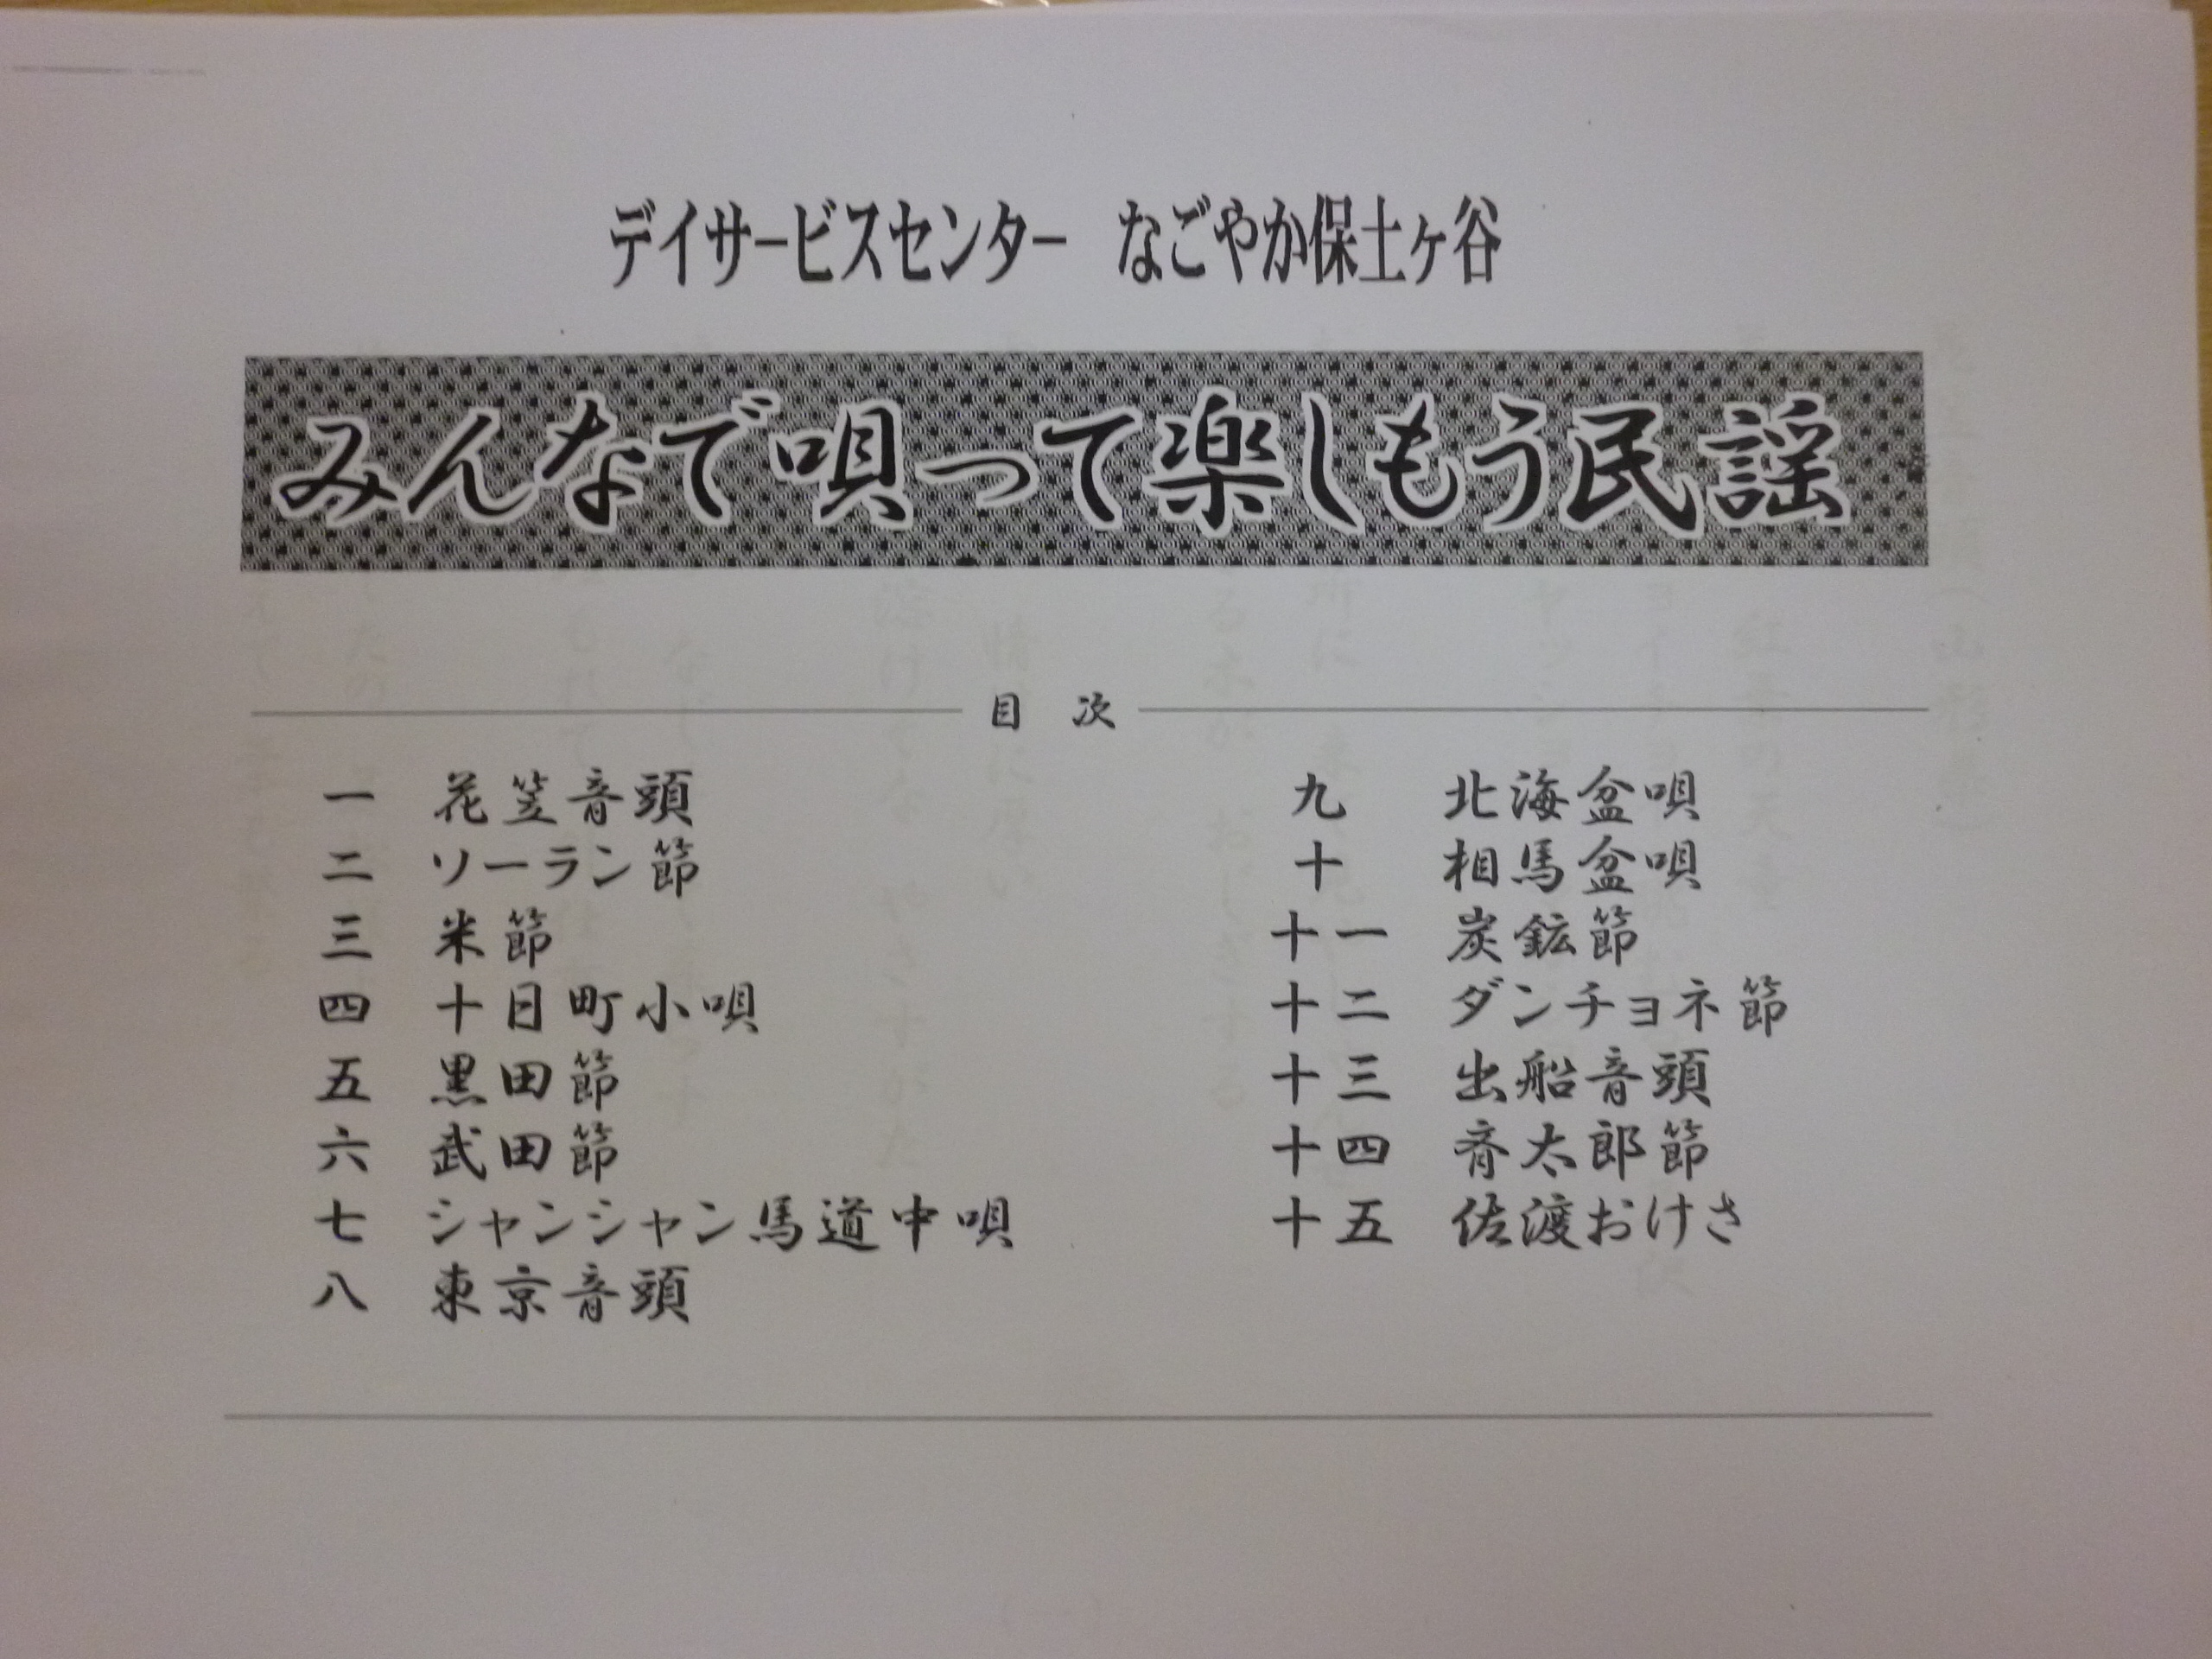 デイサービスセンター なごやか保土ヶ谷
みんなで唄って楽しもう民謡
目 次
一 花笠音頭
二 ソーラン節
三 米節
四 十日町小唄
五 黒田節
六 武田節
七 シャンシャン馬道中唄
八 東京音頭
九 北海盆唄
十 相馬盆唄
十一 炭鉱節
十二 ダンチョネ節
十三 出船音頭
十四 斉太郎節
十五 佐渡おけさ